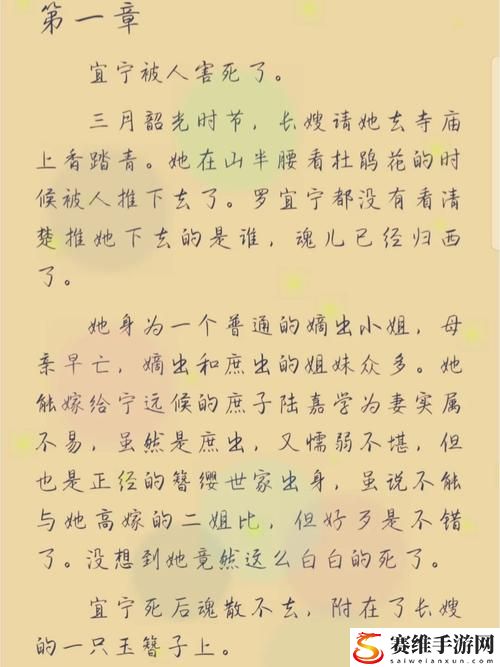 第一章
宜宁被人害死了。
三月韶光时节，长嫂请她去寺庙
上香踏青。她在山半腰看杜鹃花的时
候被人推下去了。罗宜宁都没有看清
楚推她下去的是谁，魂儿已经归西
了。
她身为一个普通的嫡出小姐，母
亲早亡，嫡出和庶出的姐妹众多。她
能嫁给宁远候的庶子陆嘉学为妻实属
不易，虽然是庶出，又懦弱不堪，但
也是正经的簪缨世家出身，虽说不能
与她高嫁的二姐比，但好歹是不错
了。没想到她竟然这么白白的死了。
宜宁死后魂散不去，附在了长嫂
的一只玉簪子上。
赛维手游网
www.saiweiwanxun.com